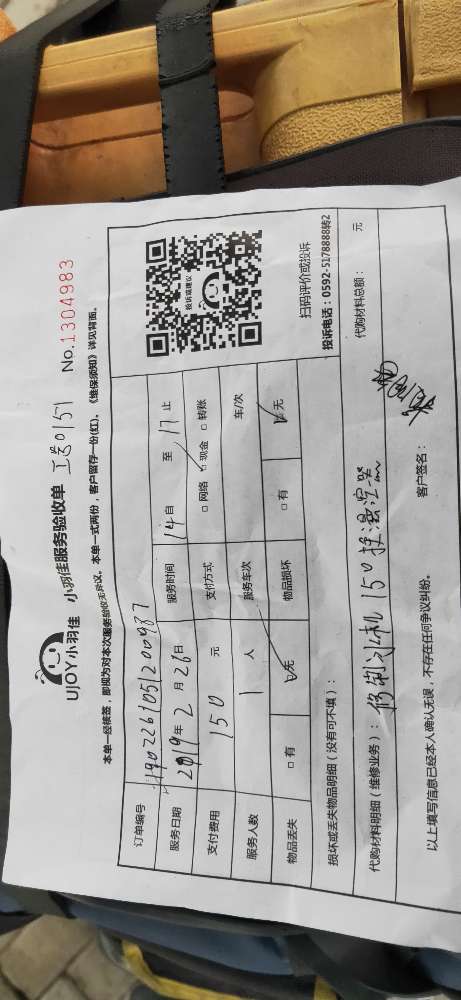 UJOY小羽佳 小羽佳服务验收单 工号0151 No.1304983
本单一经核签，即视为对本次服务验收无异议。本单一式两份，客户留存一份(红)。《维保须知》详见背面。
订单编号 1902261051200987
服务日期 2019年2月26日 服务时间 14自 至 17止
支付费用 150 元 支付方式 □网络 ☑现金 □转账
服务人数 1 人 服务车次 车/次
物品丢失 □有 ☑无 物品损坏 □有 ☑无
投诉或建议
扫码评价或投诉
投诉电话：0592-5178888转2
损坏或丢失物品明细（没有可不填）：
代购材料明细（维修业务）： 修制冰机 150 换温控器 代购材料总额： 元
以上填写信息已经本人确认无误，不存在任何争议纠纷。 客户签名：